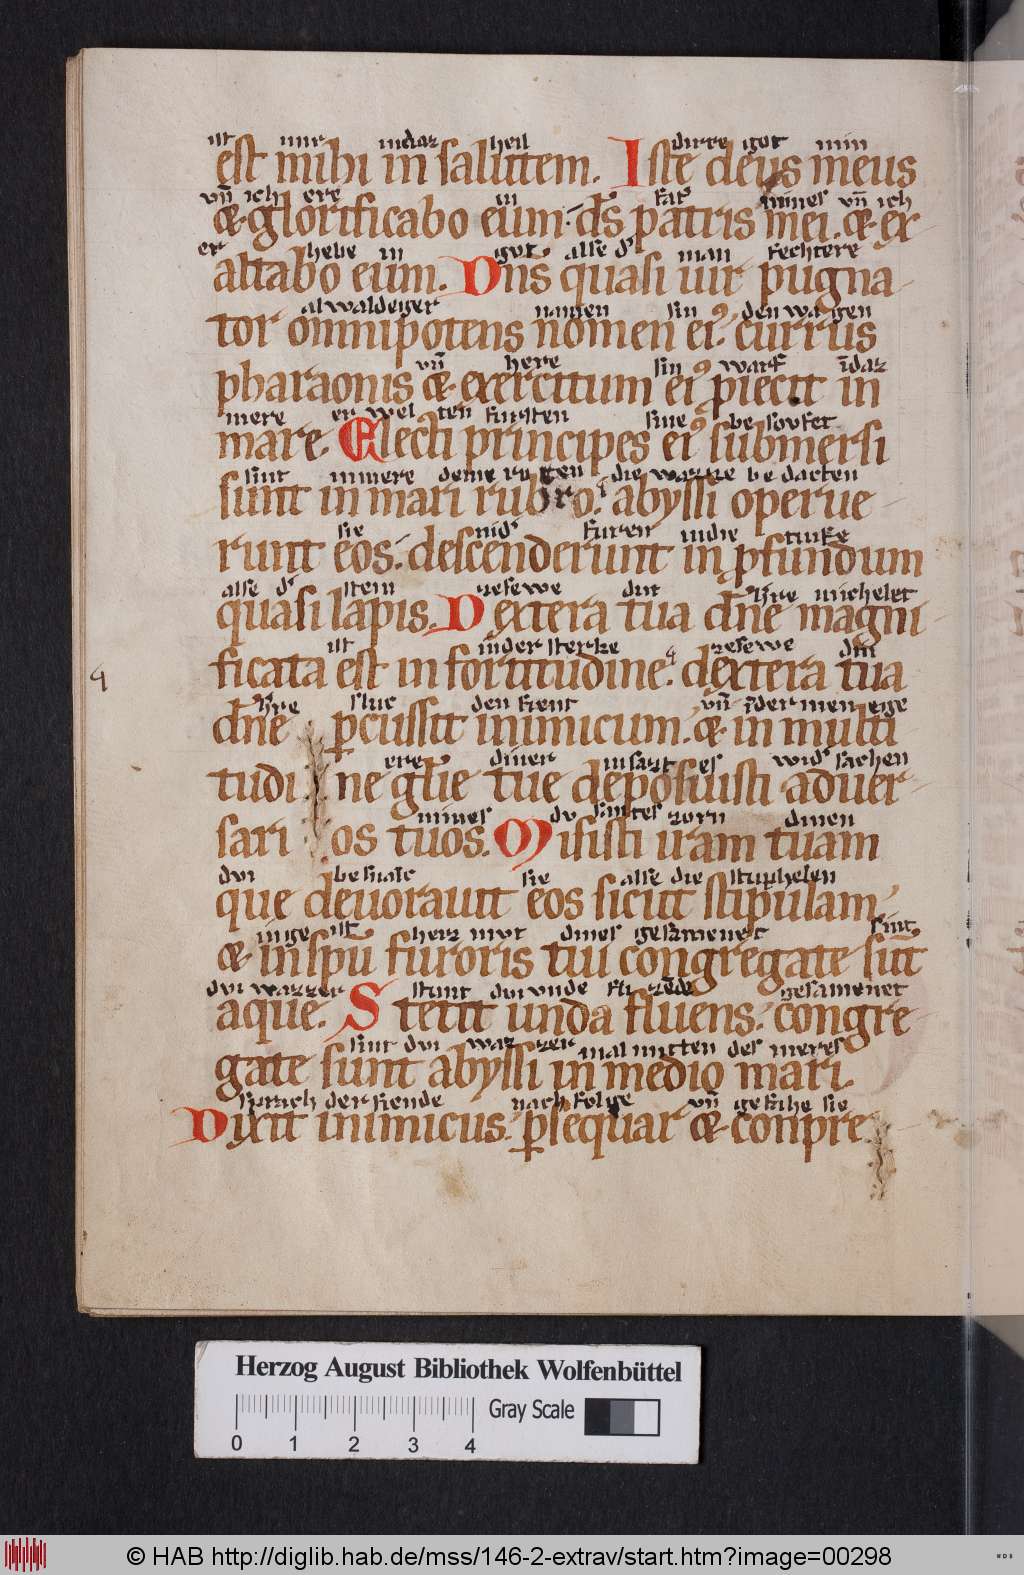 ist mir indaz heil dirre got min
est mihi in salutem. Iste deus meus
vn̄ ich ere in mines vn̄ ich
& glorificabo eum. ds̄ patris mei. & ex
er hebe in got alse d' man fechtere
altabo eum. Dn̄s quasi uir pugna
alwaldeger namen sin den wa gen
tor omnipotens nomen eiꝰ. currus
vn̄ here sin warf īdaz
pharaonis & exercitum eiꝰ ꝓiecit in
mere er wel ten fursten sine be soufet
mare. Electi principes eiꝰ submersi
sint inmere deme roten die wazze be dacten
sunt in mari rubro. abyssi operue
sie nid' furen indie tiufe
runt eos. descenderunt in ꝓfundum
alse d' stein zesewe din h're michelet
quasi lapis. Dextera tua dn̄e magni
ist inder sterke zesewe din
ficata est in fortitudine. dextera tua
h're sluc den fient vn̄ īder men ege
dn̄e ꝑcussit inimicum. & in multi
ere diner insazt es wid' sachen
tudi ne glīe tue deposuisti aduer
mines du santes zorn dinen
sari os tuos. Misisti iram tuam
dvi sie alse die stuphelen
que deuorauit eos sicut stipulam
inge ist herz mvt dines gesamenet sint
& in spū furoris tui congregate sūt
dvi wazzer stunt dvi unde fliezēde gesamenet
aque. Stetit unda fluens. congre
sint dvi waz zer inal mitten des meres
gate sunt abyssi in medio mari.
sprach der fiende nach folge vn̄ gefahe sie
Dixit inimicus. ꝑsequar & conpre
Herzog August Bibliothek Wolfenbüttel
Gray Scale
0 1 2 3 4
© HAB http://diglib.hab.de/mss/146-2-extrav/start.htm?image=00298